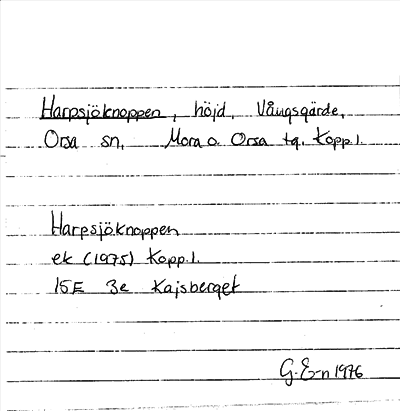 Harpsjöknoppen, höjd, Vångsgärde,
Orsa sn, Mora o. Orsa tg. Kopp.l.
Harpsjöknoppen
ek (1975) Kopp.l.
15E 3e Kajsberget
G. E-n 1976